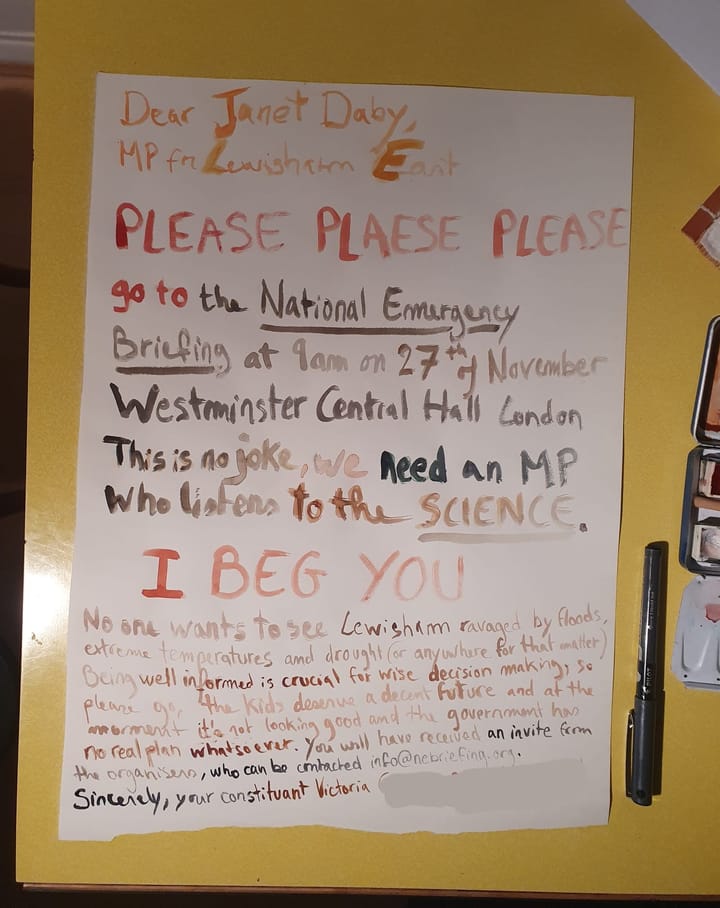 Dear Janet Daby,
MP for Lewisham East
PLEASE PLAESE PLEASE
go to the National Emergency
Briefing at 9am on 27th of November
Westminster Central Hall London
This is no joke, we need an MP
who listens to the SCIENCE.
I BEG YOU
No one wants to see Lewisham ravaged by floods,
extreme temperatures and drought (or anywhere for that matter)
Being well informed is crucial for wise decision making, so
please go, the kids deserve a decent future and at the
moment it's not looking good and the government has
no real plan whatsoever. You will have received an invite from
the organisers, who can be contacted info@nebriefing.org.
Sincerely, your constituant Victoria